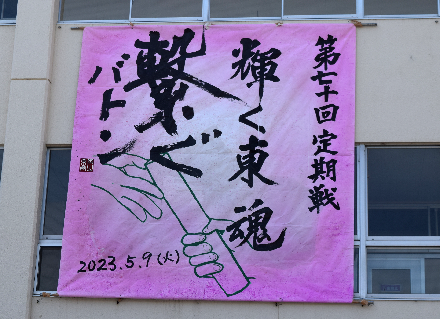 第七十回定期戦
輝く東魂
繋ぐ
バトン
2023.5.9(火)